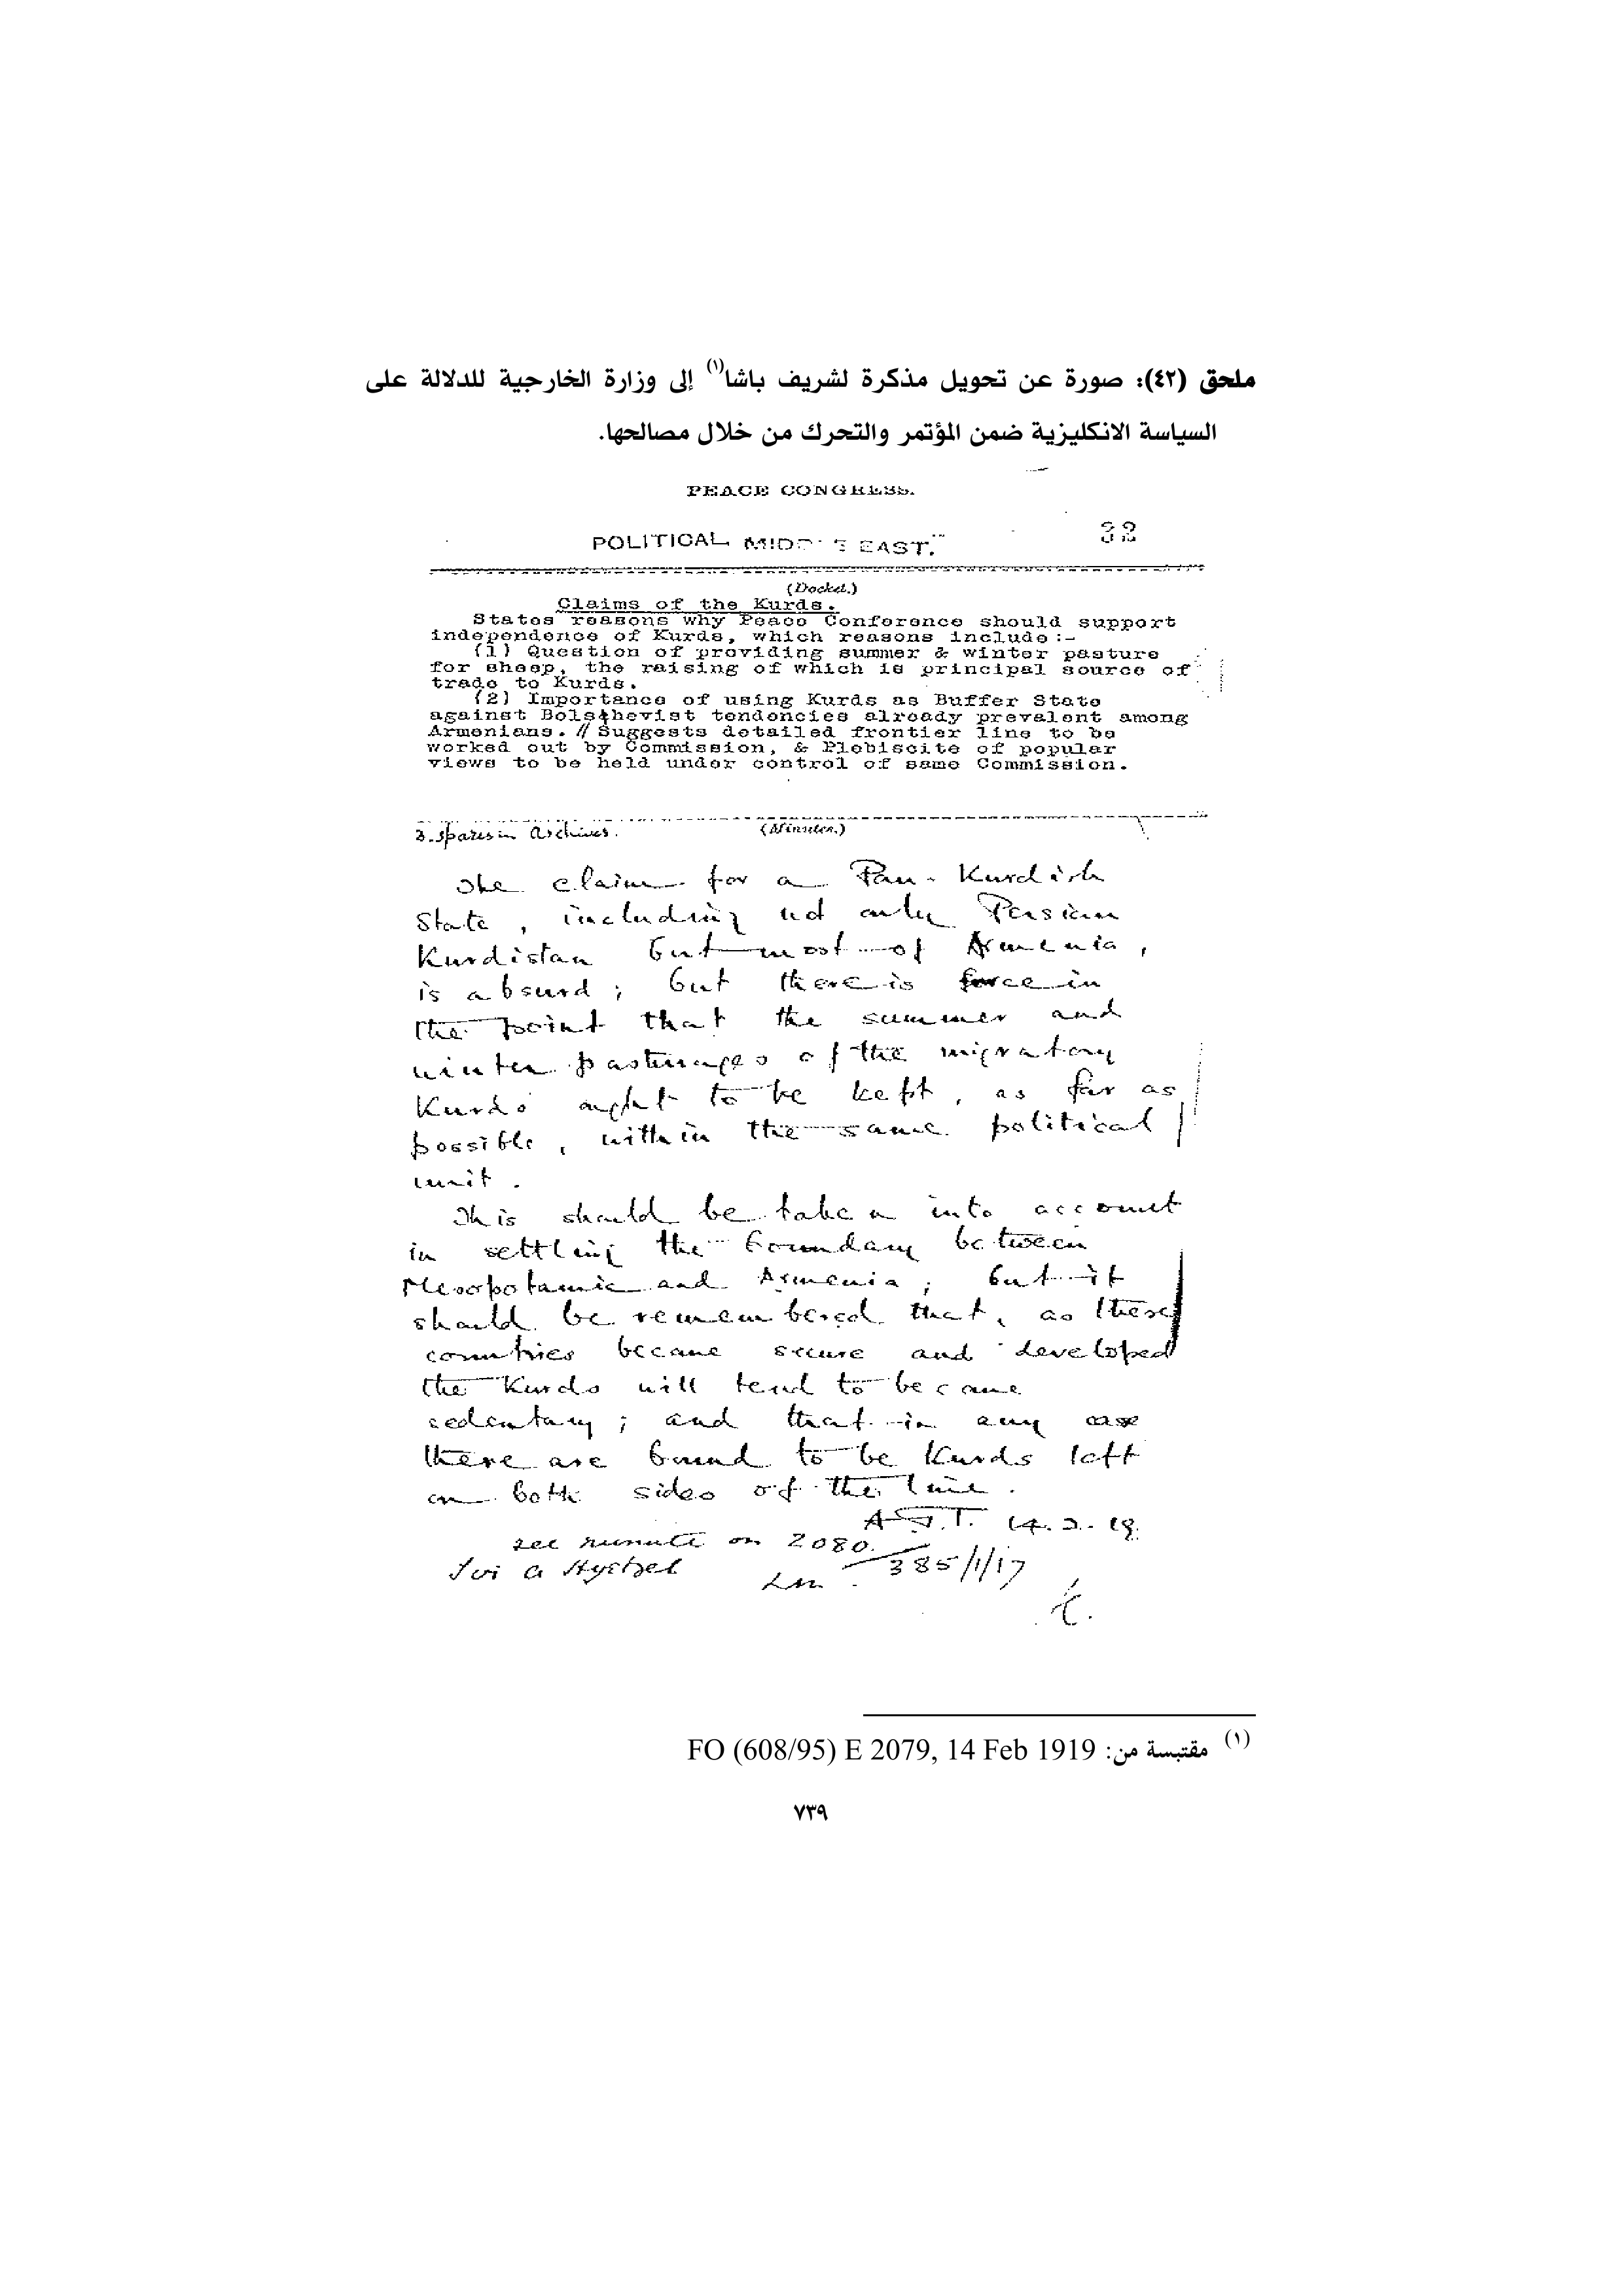 ملحق (٤٢): صورة عن تحويل مذكرة لشريف باشا(١) إلى وزارة الخارجية للدلالة على
السياسة الانكليزية ضمن المؤتمر والتحرك من خلال مصالحها.
PEACE CONGRESS.
POLITICAL MIDDLE EAST.
32
(Docket.)
Claims of the Kurds.
States reasons why Peace Conference should support
independence of Kurds, which reasons include:-
(1) Question of providing summer & winter pasture
for sheep, the raising of which is principal source of
trade to Kurds.
(2) Importance of using Kurds as Buffer State
against Bolshevist tendencies already prevalent among
Armenians. // Suggests detailed frontier line to be
worked out by Commission, & Plebiscite of popular
views to be held under control of same Commission.
3. spares in Archives.
(Minutes.)
The claim for a Pan-Kurdish
State, including not only Persian
Kurdistan but most of Armenia,
is absurd; but there is force in
the point that the summer and
winter pasturages of the migratory
Kurds ought to be kept, as far as
possible, within the same political
unit.
This should be taken into account
in settling the boundary between
Mesopotamia and Armenia; but it
should be remembered that, as these
countries become secure and developed
the Kurds will tend to become
sedentary; and that in any case
there are bound to be Kurds left
on both sides of the line.
A.J.T. 14.2.19.
see minute on 2080.
385/1/17
(١) مقتبسة من: FO (608/95) E 2079, 14 Feb 1919
٧٣٩